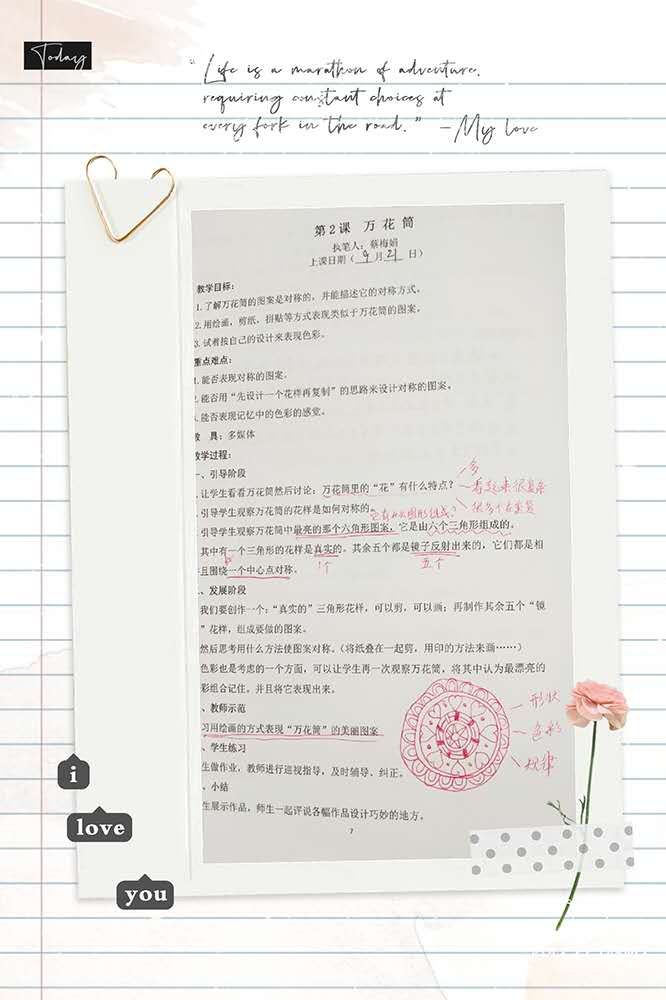 Today
“Life is a marathon of adventure,
requiring constant choices at
every fork in the road.” —My love
第2课 万花筒
执笔人：蔡梅娟
上课日期（9月21日）
教学目标：
1.了解万花筒的图案是对称的，并能描述它的对称方式。
2.用绘画，剪纸，拼贴等方式表现类似于万花筒的图案。
3.试着按自己的设计来表现色彩。
重点难点：
1.能否表现对称的图案。
2.能否用“先设计一个花样再复制”的思路来设计对称的图案。
.能否表现记忆中的色彩的感觉。
教 具：多媒体
教学过程：
一、引导阶段
多
.让学生看看万花筒然后讨论：万花筒里的“花”有什么特点？
看起来很复杂
.引导学生观察万花筒的花样是如何对称的。
它有什么图形组成？
很多个在重复
引导学生观察万花筒中最亮的那个六角形图案，它是由六个三角形组成的。
其中有一个三角形的花样是真实的。其余五个都是镜子反射出来的，它们都是相
且围绕一个中心点对称。
1个
五个
、发展阶段
我们要创作一个：“真实的”三角形花样，可以剪，可以画；再制作其余五个“镜
”花样，组成要做的图案。
然后思考用什么方法使图案对称。（将纸叠在一起剪，用印的方法来画……）
色彩也是考虑的一个方面，可以让学生再一次观察万花筒，将其中认为最漂亮的
彩组合记住。并且将它表现出来。
、教师示范
习用绘画的方式表现“万花筒”的美丽图案
形状
色彩
规律
、学生练习
生做作业，教师进行巡视指导，及时辅导、纠正。
、小结
生展示作品，师生一起评说各幅作品设计巧妙的地方。
7
i
love
you